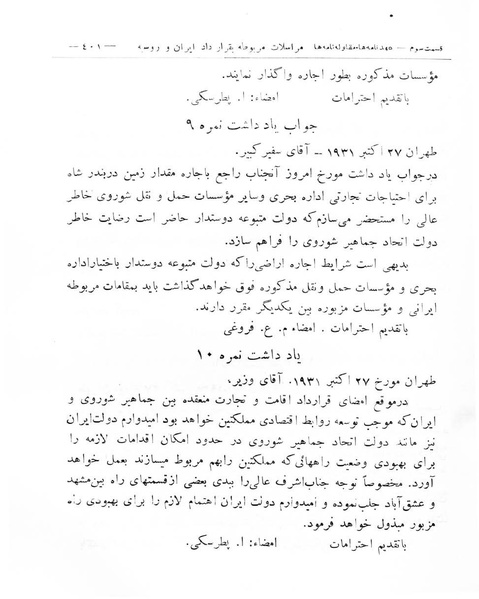 قسمت سوم — عهدنامه‌ها مقاوله‌نامه‌ها مراسلات مربوطه بقرار داد ایران و روسیه — ٤٠١ —
مؤسسات مذکوره بطور اجاره واگذار نمایند.
باتقدیم احترامات امضاء: ا. پطرسکی.
جواب یاد داشت نمره ۹
طهران ۲۷ اکتبر ۱۹۳۱ ـ آقای سفیر کبیر.
درجواب یاد داشت مورخ امروز آنجناب راجع باجاره مقدار زمین دربندر شاه
برای احتیاجات تجارتی اداره بحری وسایر مؤسسات حمل و نقل شوروی خاطر
عالی را مستحضر می‌سازم که دولت متبوعه دوستدار حاضر است رضایت خاطر
دولت اتحاد جماهیر شوروی را فراهم سازد.
بدیهی است شرایط اجاره اراضی را که دولت متبوعه دوستدار باختیاراداره
بحری و مؤسسات حمل ونقل مذکوره فوق خواهدگذاشت باید بمقامات مربوطه
ایرانی و مؤسسات مزبوره بین یکدیگر مقرر دارند.
باتقدیم احترامات . امضاء م. ع. فروغی
یاد داشت نمره ۱۰
طهران مورخ ۲۷ اکتبر ۱۹۳۱. آقای وزیر،
درموقع امضای قرارداد اقامت و تجارت منعقده بین جماهیر شوروی و
ایران که موجب توسعه روابط اقتصادی مملکتین خواهد بود امیدوارم دولت ایران
نیز مانند دولت اتحاد جماهیر شوروی در حدود امکان اقدامات لازمه را
برای بهبودی وضعیت راههائی که مملکتین رابهم مربوط میسازند بعمل خواهد
آورد. مخصوصاً توجه جناب‌اشرف عالی را ببدی بعضی ازقسمتهای راه بین‌مشهد
و عشق‌آباد جلب‌نموده و امیدوارم دولت ایران اهتمام لازم را برای بهبودی راه
مزبور مبذول خواهد فرمود.
باتقدیم احترامات امضاء: ا. پطرسکی.